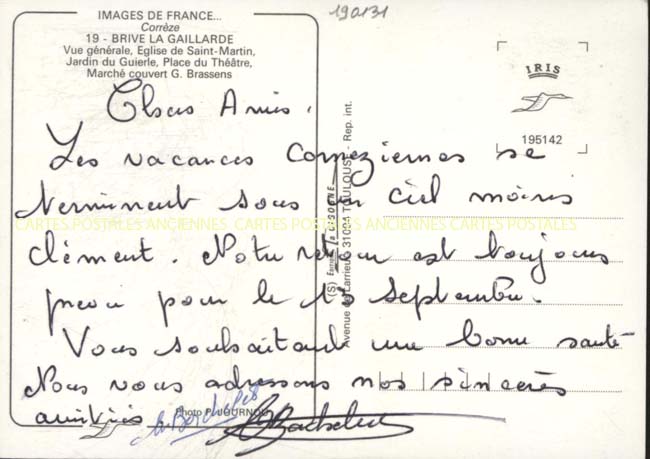 IMAGES DE FRANCE...
Corrèze
19 - BRIVE LA GAILLARDE
Vue générale, Eglise de Saint-Martin,
Jardin du Guierle, Place du Théâtre,
Marché couvert G. Brassens
190131
IRIS
195142
Chers Amis,
Les vacances corréziennes se
terminent sous un ciel moins
clément. Notre retour est toujours
prévu pour le 15 septembre.
Vous souhaitant une bonne santé
Nous vous adressons nos sincères
amitiés
Photo P. JOURNOU
(S) Editions La CIGOGNE
Avenue de Larrieu 31094 TOULOUSE - Rep. int.
CARTES POSTALES ANCIENNES CARTES POSTALES ANCIENNES CARTES POSTALES ANCIENNES